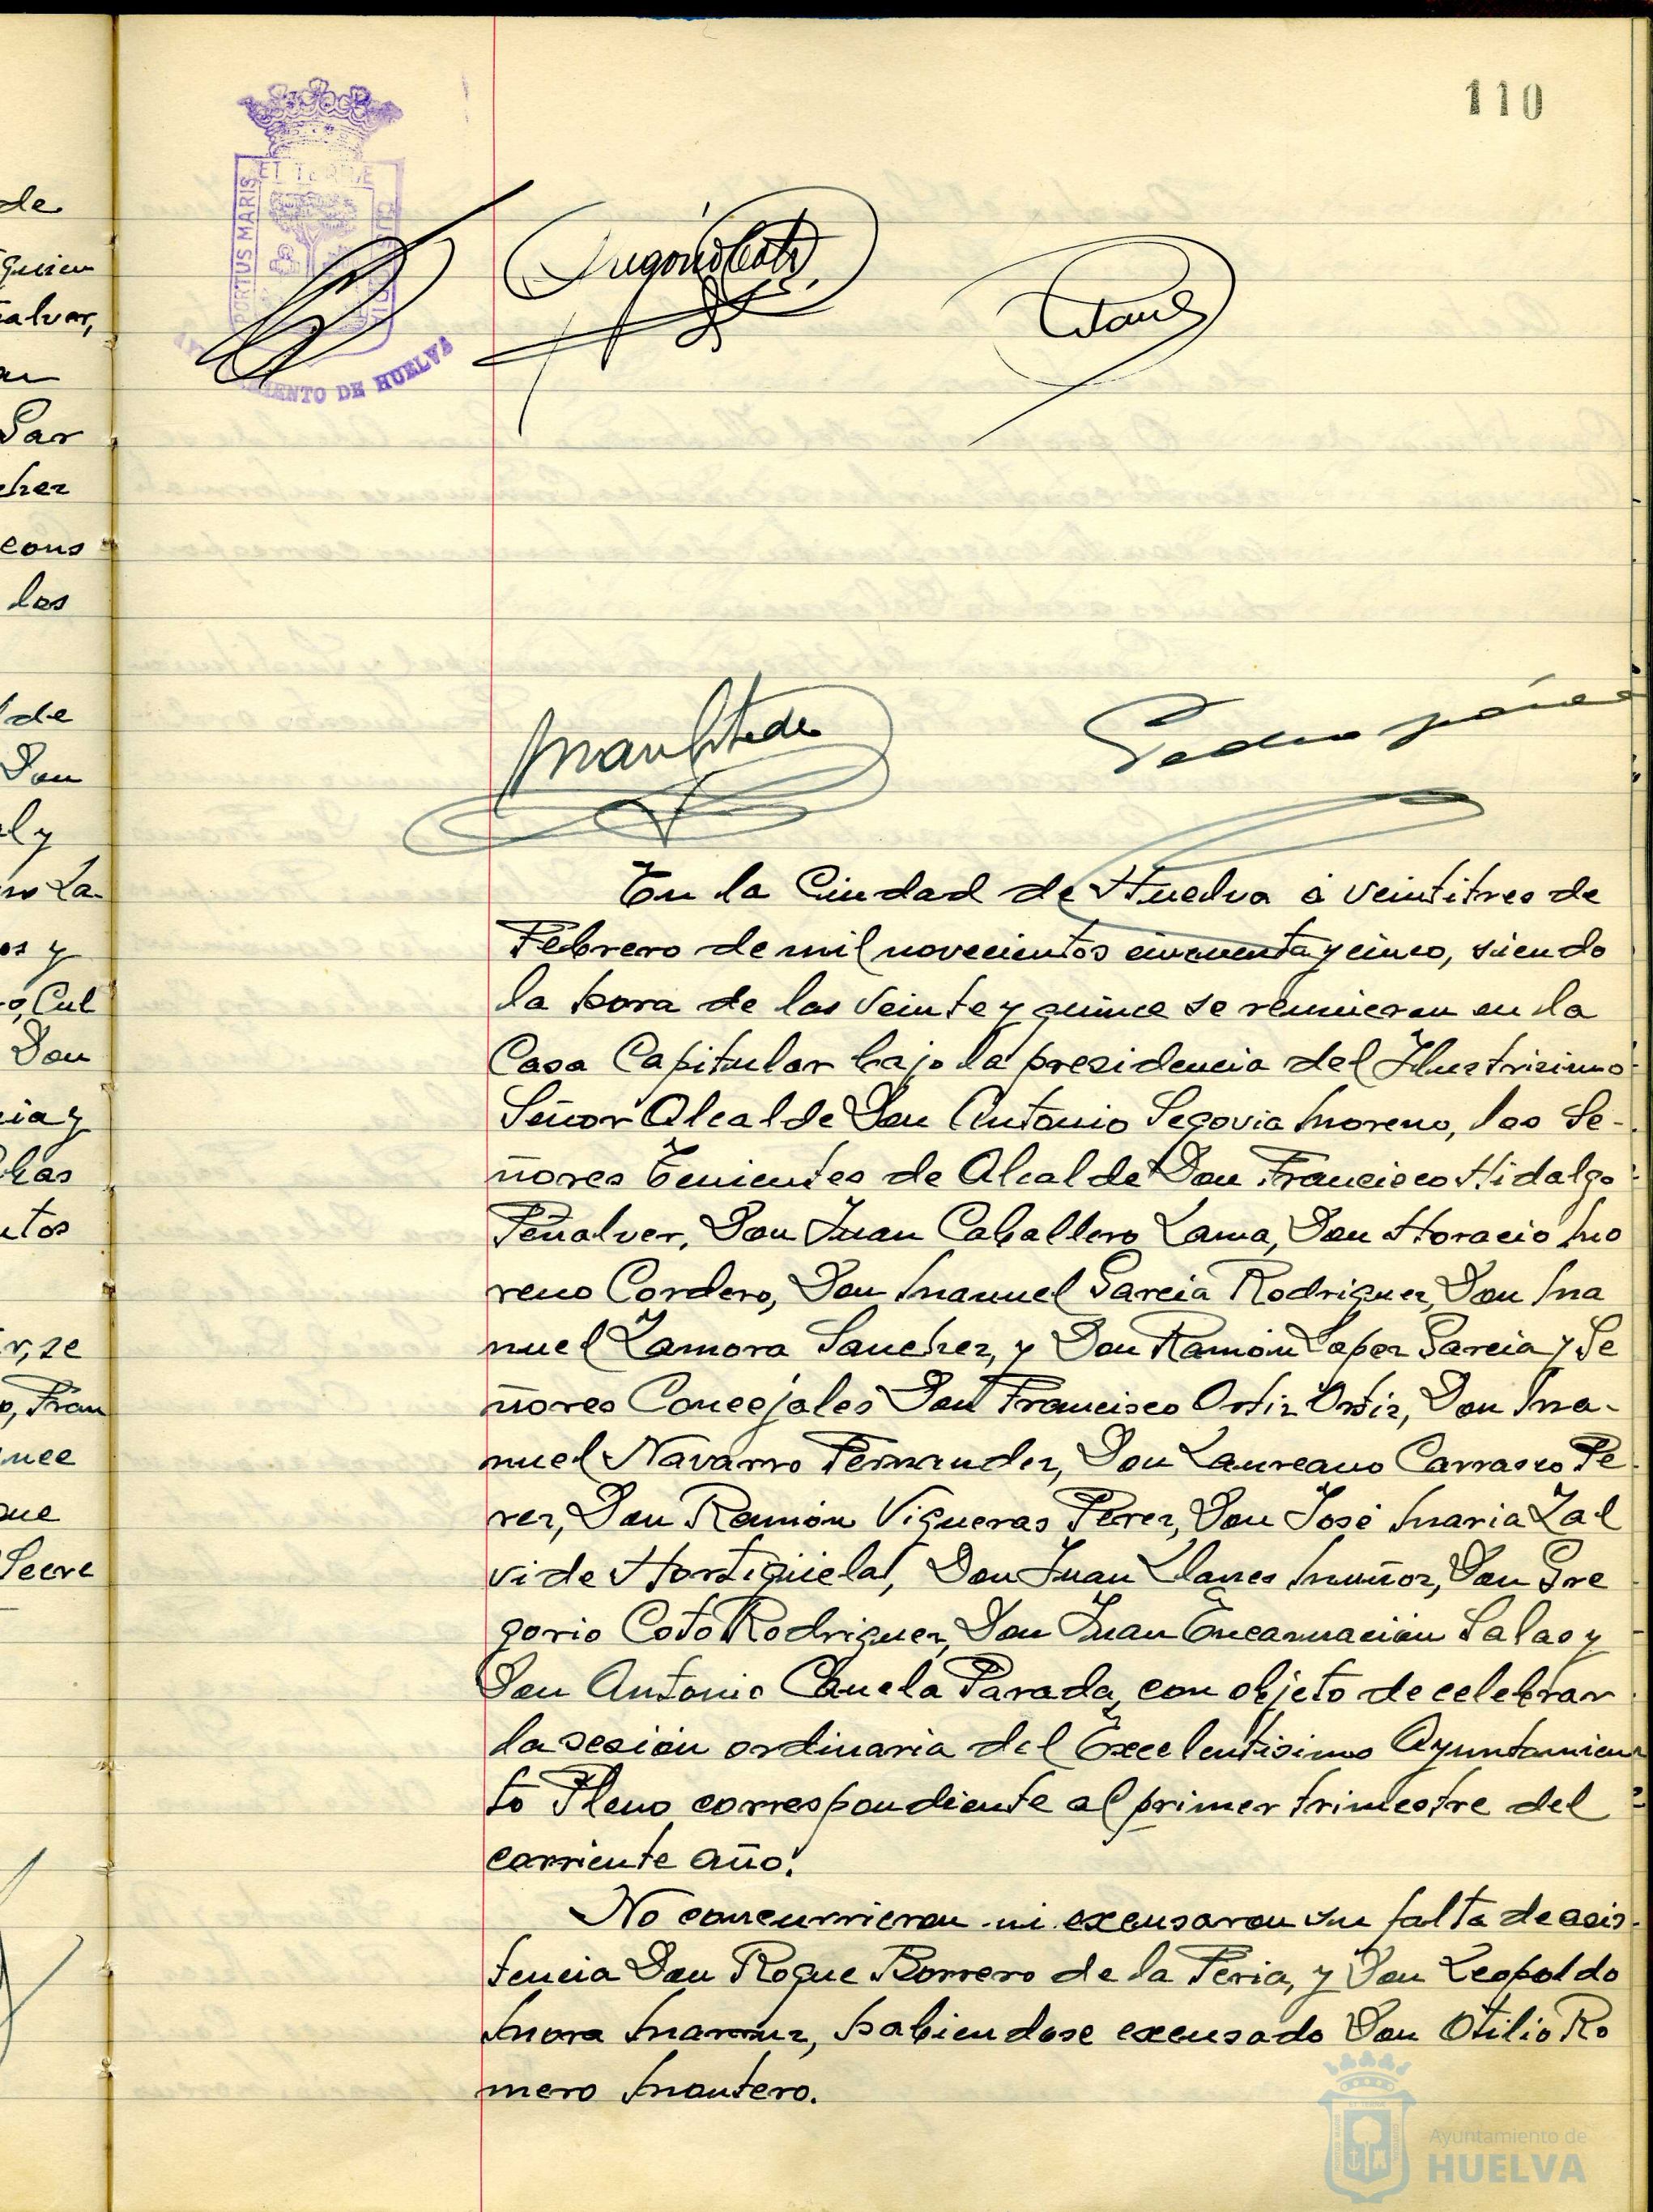 110
de
quien
alvar,
Gar
cher
cons
los
de
Don
al y
La-
os y
Cul
Don
cia y
tos
r, se
Fran
que
Secre
PORTUS MARIS
ET TERRE
CUSTODIA
AYUNTAMIENTO DE HUELVA
Gregorio Coto
En la Ciudad de Huelva á veintitres de
Febrero de mil novecientos cincuenta y cinco, siendo
la hora de las veinte y quince se reunieron en la
Casa Capitular bajo la presidencia del Ilustrisimo
Señor Alcalde Don Antonio Segovia Moreno, los Se-
ñores Tenientes de Alcalde Don Francisco Hidalgo
Peñalver, Don Juan Caballero Lama, Don Horacio Mo
reno Cordero, Don Manuel Garcia Rodriguez, Don Ma
nuel Zamora Sanchez, y Don Ramón Lopez Garcia y Se
ñores Concejales Don Francisco Ortiz Ortiz, Don Ma-
nuel Navarro Fernandez, Don Laureano Carrasco Pe
rez, Don Ramón Vigueras Perez, Don José Maria Zal
vide Hortigüela, Don Juan Llanes Muñoz, Don Gre
gorio Coto Rodriguez, Don Juan Encarnación Salas y
Don Antonio Canela Parada, con objeto de celebrar
la sesión ordinaria del Excelentisimo Ayuntamien
to Pleno correspondiente al primer trimestre del
corriente año.
No concurrieron ni excusaron su falta de asis-
tencia Don Roque Borrero de la Feria, y Don Leopoldo
Mora habiendose excusado Don Otilio Ro
mero Montero.
Ayuntamiento de
HUELVA